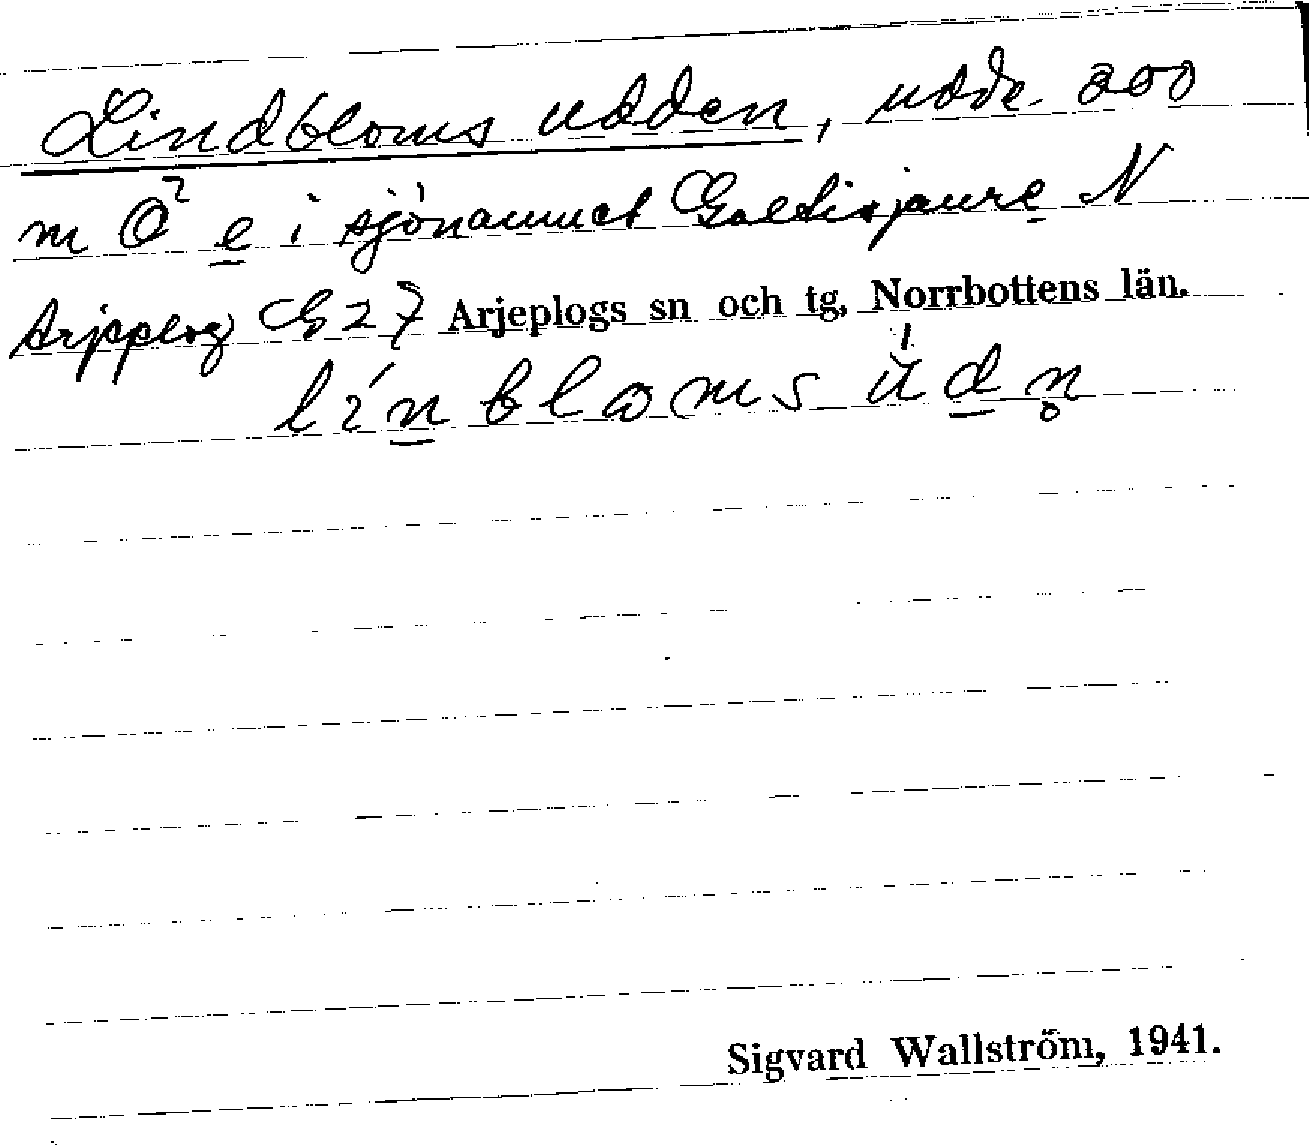 Lindbloms udden, udde 300
m Ö e i sjönamnet Galtisjaure N
Arjeplog G 27 Arjeplogs sn och tg, Norrbottens län.
línbloms ùdn̥
Sigvard Wallström, 1941.